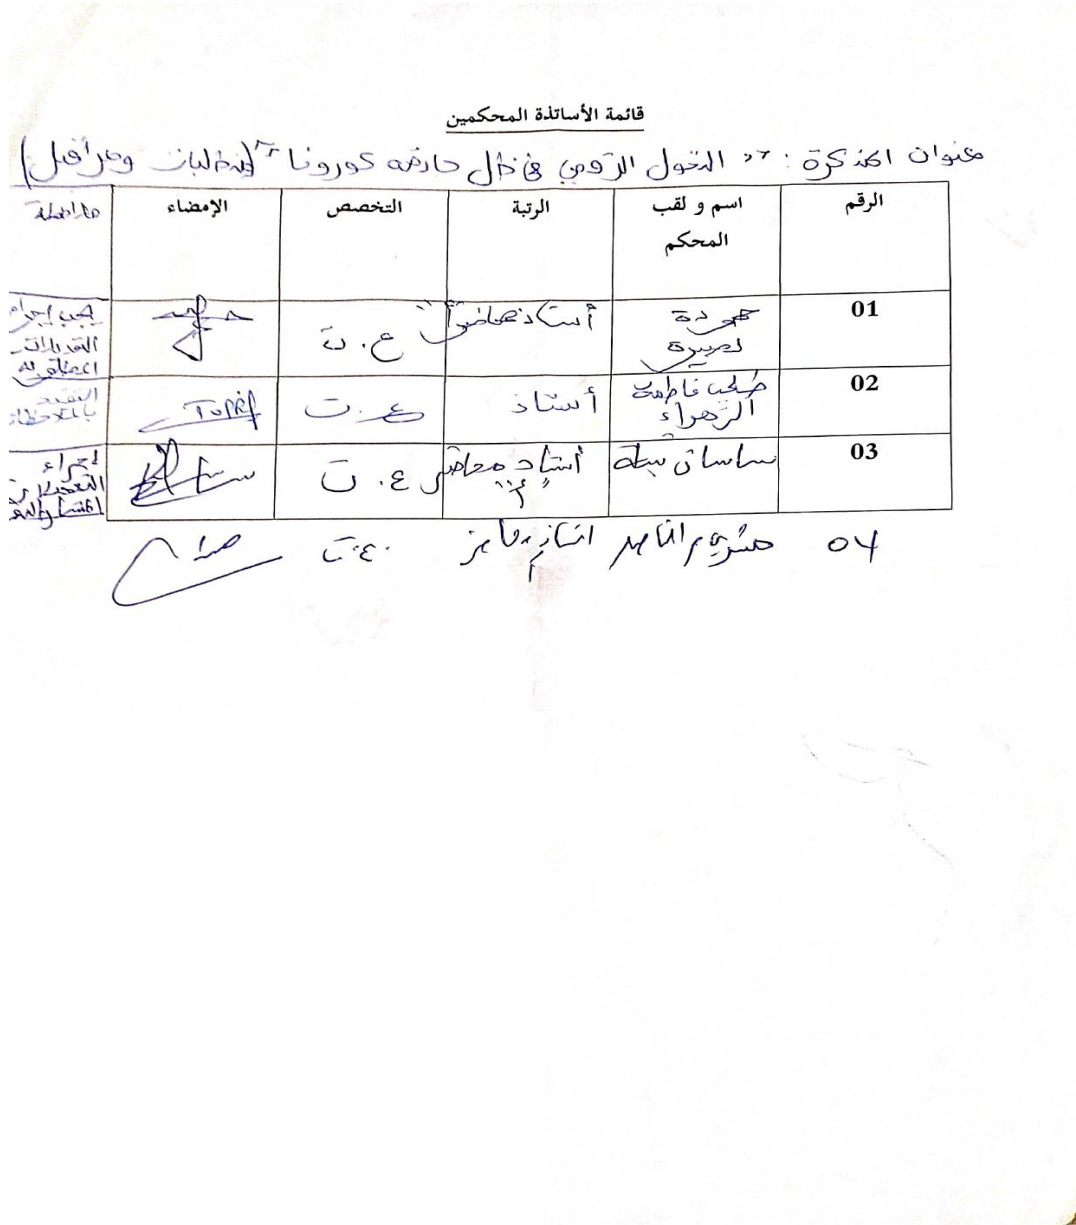 قائمة الأساتذة المحكمين
عنوان المذكرة : " التحول الرقمي في ظل جائحة كورونا " (متطلبات وعراقيل)
الرقم اسم و لقب المحكم الرتبة التخصص الإمضاء ملاحظة
01 حمودة أستاذ محاضر "أ" ع . ت يجب إجراء التعديلات المطلوبة
02 فاطمة الزهراء أستاذ ع . ت التقيد بالملاحظات
03 ساسان نبيلة أستاذ محاضر أ ع . ت إجراء التعديلات
04 أستاذ محاضر أ ع . ت